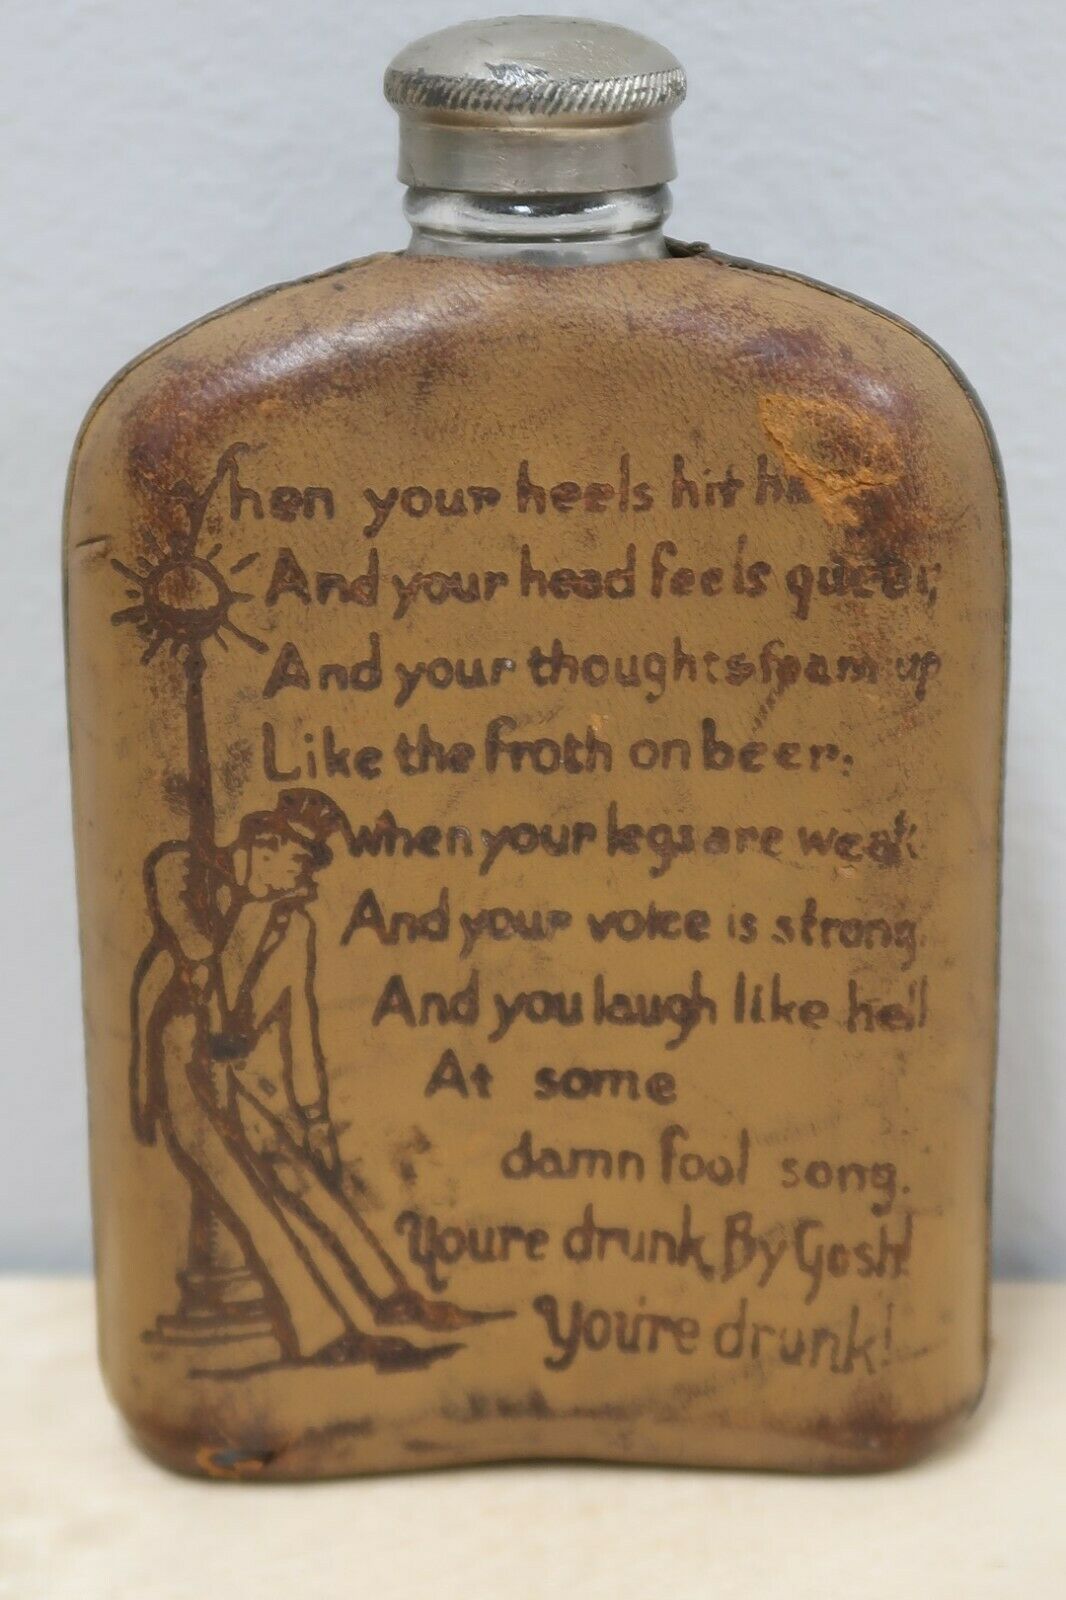 When your heels hit
And your head feels queer,
And your thoughts foam up
Like the froth on beer;
when your legs are weak
And your voice is strong.
And you laugh like hell
At some
damn fool song.
You're drunk, By Gosh!
You're drunk!